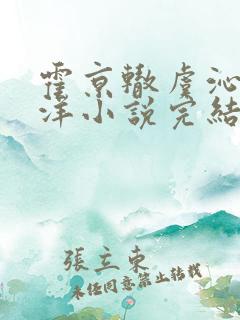 霍京辙虞沁
洋小说完结
張立東
未经同意禁止转载